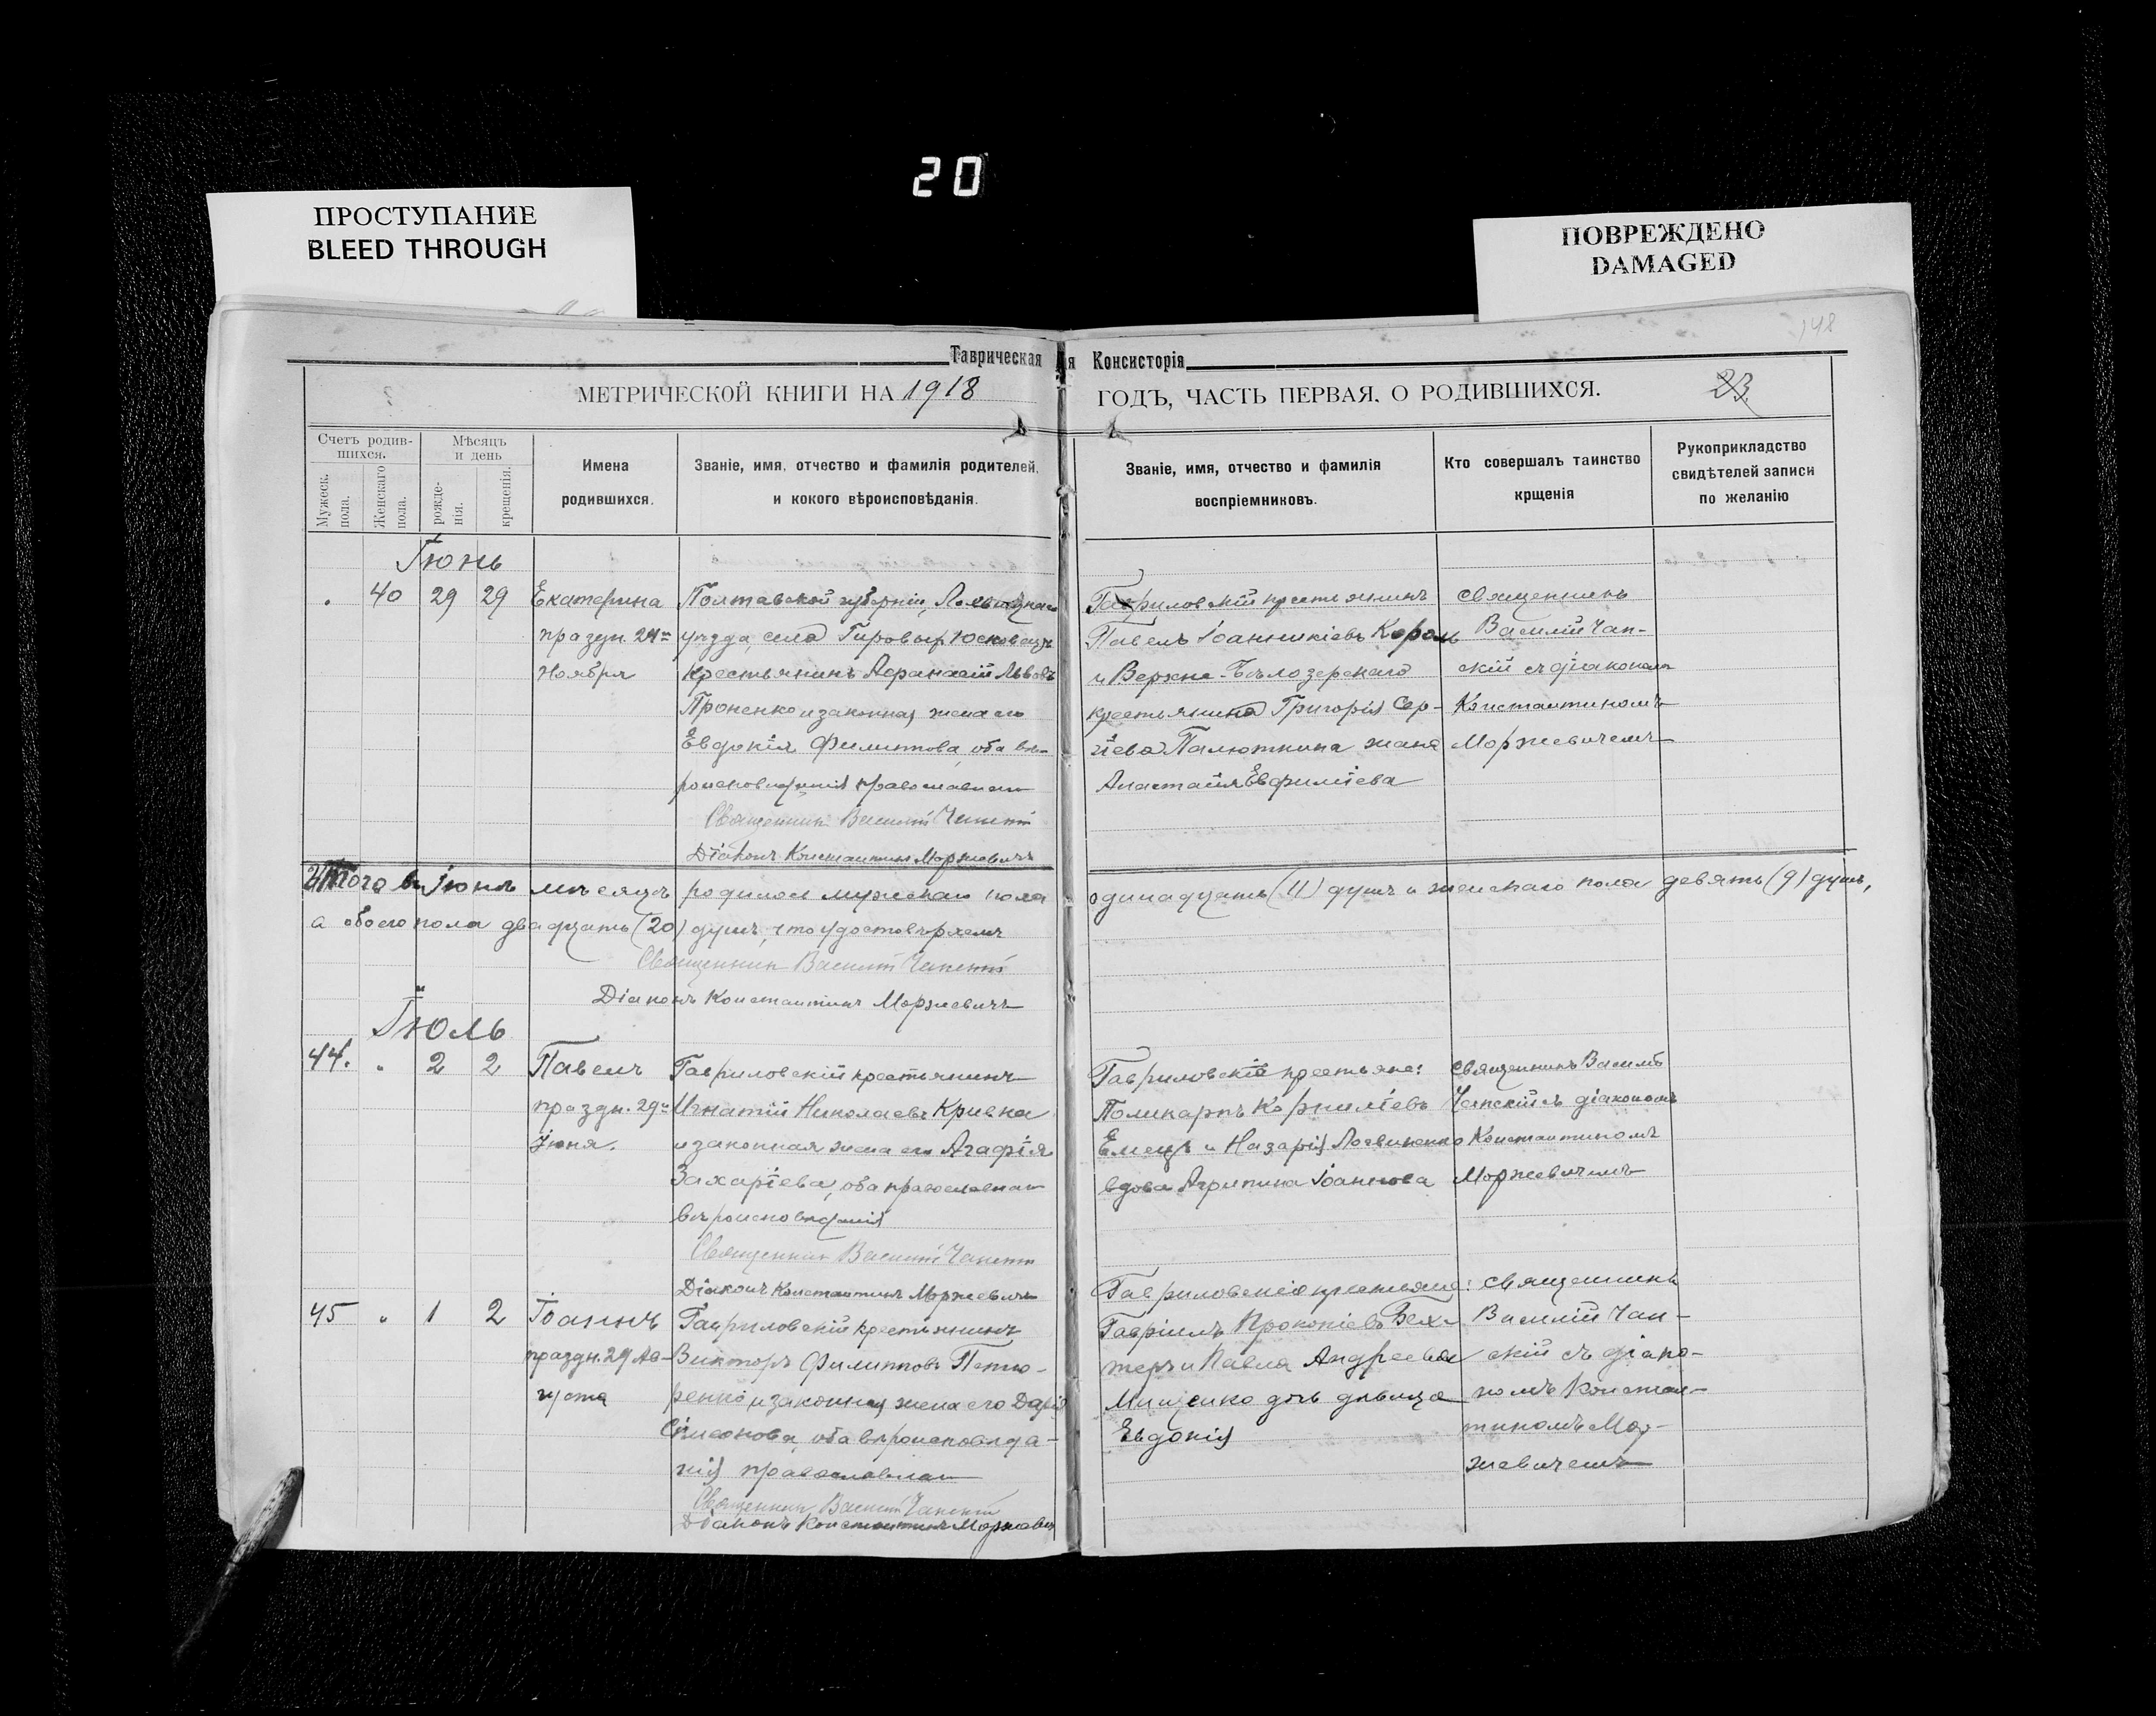 20
ПРОСТУПАНИЕ
BLEED THROUGH
ПОВРЕЖДЕНО
DAMAGED
148
Таврическая
я Консисторія
МЕТРИЧЕСКОЙ КНИГИ НА 1918
ГОДЪ, ЧАСТЬ ПЕРВАЯ. О РОДИВШИХСЯ.
23.
Счетъ родив-
шихся.
Мужеск.
пола.
Женскаго
пола.
Мѣсяцъ
и день
рожде-
нія.
крещенія.
Имена
родившихся.
Званіе, имя, отчество и фамилія родителей,
и кокого вѣроисповѣданія.
Званіе, имя, отчество и фамилія
воспріемниковъ.
Кто совершалъ таинство
крщенія
Рукоприкладство
свидѣтелей записи
по желанію
Іюнь
40 29 29
Екатерина
праздн. 24го
Ноября
Полтавской губерніи,
уѣзда, села
крестьянинъ Аѳанасій Львовъ
Проненко и законная жена его
Евдокія Филиппова, оба вѣ-
роисповѣданія православнаго
Священникъ Василій Чапскій
Діаконъ Константинъ Моржевичъ
Гавриловскій крестьянинъ
Павелъ Іоанникіевъ Король
и Верхне-Бѣлозерскаго
крестьянина Григорія Сер-
гіева жена
Анастасія Евфиміева
священникъ
Василій Чап-
скій съ діакономъ
Константиномъ
Моржевичемъ
Итого въ Іюнѣ мѣсяцѣ родилось мужескаго пола одинадцать (11) душъ и женскаго пола девять (9) душъ,
а обоего пола двадцать (20) душъ, что удостовѣряемъ
Священникъ Василій Чапскій
Діаконъ Константинъ Моржевичъ
Іюль
44. " 2 2
Павелъ
праздн. 29го
Іюня.
Гавриловскій крестьянинъ
Игнатій Николаевъ Кривка
и законная жена его Агафія
Захаріева, оба православнаго
вѣроисповѣданія
Священникъ Василій Чапскій
Діаконъ Константинъ Моржевичъ
Гавриловскіе крестьяне:
Поликарпъ Корниліевъ
Емецъ и Назарія Логвиненко
вдова Агрипина Іоаннова
священникъ Василій
Чапскій съ діакономъ
Константиномъ
Моржевичемъ
45 " 1 2
Іоаннъ
праздн. 29 Ав-
густа
Гавриловскій крестьянинъ
Викторъ Филипповъ Петю-
ренко и законная жена его Дарія
Симеонова, оба вѣроисповѣда-
нія православнаго
Священникъ Василій Чапскій
Діаконъ Константинъ Моржевичъ
Гавриловскіе крестьяне:
Гавріилъ Прокопіевъ Бех-
теръ и Павла Андреева
Мищенко дочь дѣвица
Евдокія
священникъ
Василій Чап-
скій съ діако-
номъ Констан-
тиномъ Мор-
жевичемъ